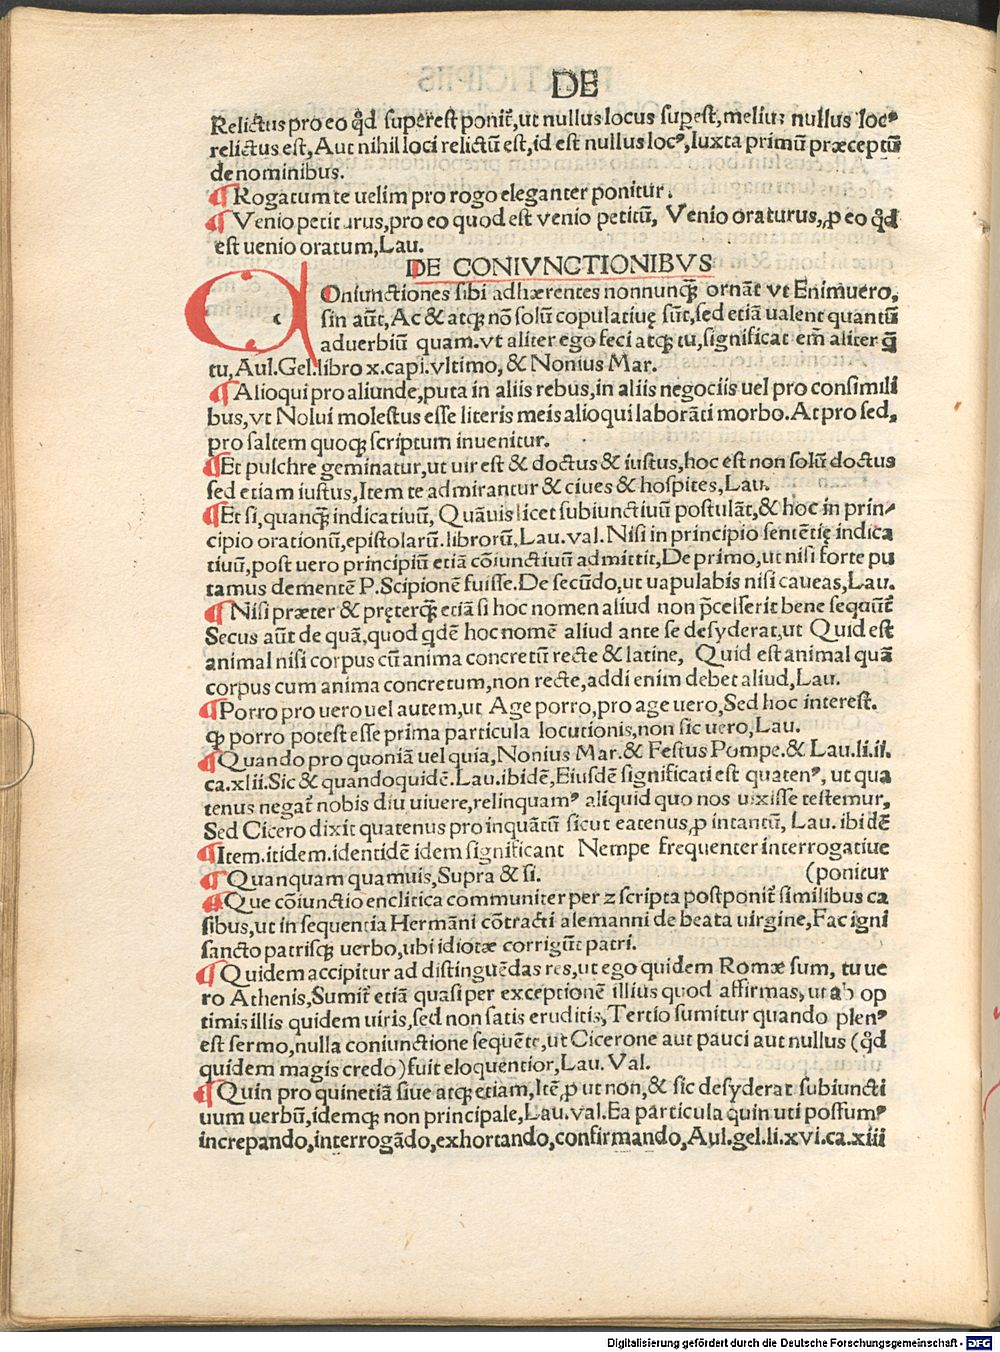 DE
Relictus pro eo qđ superest ponit̃, ut nullus locus supest, melius nullus locꝰ
relictus est, Aut nihil loci relictũ est, id est nullus locꝰ, Iuxta primũ præceptũ
de nominibus.
¶ Rogatum te uelim pro rogo eleganter ponitur.
¶ Venio petiturus, pro eo quod est venio petitũ, Venio oraturus, ꝓ eo qđ
est uenio oratum, Lau.
DE CONIVNCTIONIBVS
COniunctiones sibi adhærentes nonnunqꝫ ornãt vt Enimuero,
sin aũt, Ac & atqꝫ nõ solũ copulatiuę sũt, sed etiã ualent quantũ
aduerbiũ quam. vt aliter ego feci atqꝫ tu, significat em̃ aliter q̃
tu, Aul. Gel. libro x. capi. vltimo, & Nonius Mar.
¶ Alioqui pro aliunde, puta in aliis rebus, in aliis negociis uel pro consimili
bus, vt Nolui molestus esse literis meis alioqui laborãti morbo. At pro sed,
pro saltem quoqꝫ scriptum inuenitur.
¶ Et pulchre geminatur, ut uir est & doctus & iustus, hoc est non solũ doctus
sed etiam iustus, Item te admirantur & ciues & hospites, Lau.
¶ Et si, quanqꝫ indicatiuũ, Quãuis licet subiunctiuũ postulãt, & hoc in prin⸗
cipio orationũ, epistolarũ. librorũ, Lau. val. Nisi in principio sentẽtię indica
tiuũ, post uero principiũ etiã cõiunctiuũ admittit, De primo, ut nisi forte pu
tamus dementẽ P. Scipionẽ fuisse. De secũdo, ut uapulabis nisi caueas, Lau.
¶ Nisi præter & pręterqꝫ etiã si hoc nomen aliud non p̃cesserit bene sequũt̃
Secus aũt de quã, quod qdẽ hoc nomẽ aliud ante se desyderat, ut Quid est
animal nisi corpus cũ anima concretũ recte & latine, Quid est animal quã
corpus cum anima concretum, non recte, addi enim debet aliud, Lau.
¶ Porro pro uero uel autem, ut Age porro, pro age uero, Sed hoc interest.
qꝫ porro potest esse prima particula locutionis, non sic uero, Lau.
¶ Quando pro quoniã uel quia, Nonius Mar. & Festus Pompe. & Lau. li. ii.
ca. xlii. Sic & quandoquidẽ. Lau. ibidẽ, Eiusdẽ significati est quatenꝰ, ut qua
tenus negat̃ nobis diu uiuere, relinquamꝰ aliquid quo nos uixisse testemur,
Sed Cicero dixit quatenus pro inquãtũ sicut eatenus, ꝓ intantũ, Lau. ibidẽ
¶ Item. itidem. identidẽ idem significant Nempe frequenter interrogatiue
¶ Quanquam quamuis, Supra & si. (ponitur
¶ Que cõiunctio enclitica communiter per z scripta postponit̃ similibus ca
sibus, ut in sequentia Hermãni cõtracti alemanni de beata uirgine, Fac igni
sancto patrisqꝫ uerbo, ubi idiotæ corrigũt patri.
¶ Quidem accipitur ad distinguẽdas res, ut ego quidem Romæ sum, tu ue
ro Athenis, Sumit̃ etiã quasi per exceptionẽ illius quod affirmas, ut ab op
timis illis quidem uiris, sed non satis eruditis, Tertio sumitur quando plenꝰ
est sermo, nulla coniunctione sequẽte, ut Cicerone aut pauci aut nullus (qđ
quidem magis credo) fuit eloquentior, Lau. Val.
¶ Quin pro quinetiã siue atqꝫ etiam, Itẽ, ꝓ ut non, & sic desyderat subiuncti
uum uerbũ, idemqꝫ non principale, Lau. val. Ea particula quin uti possumꝰ
increpando, interrogãdo, exhortando, confirmando, Aul. gel. li. xvi. ca. xiii
Digitalisierung gefördert durch die Deutsche Forschungsgemeinschaft - DFG